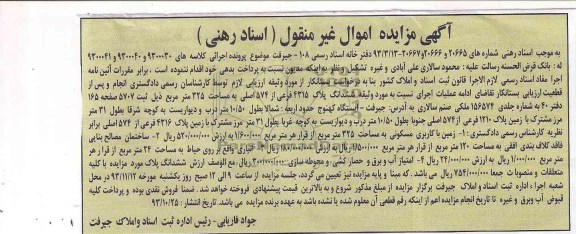 آگهی مزایده اموال غیر منقول ( اسناد رهنی )
به موجب اسناد رهنی شماره های ۲۰۶۶۵ و ۲۰۶۶۶ و ۲۰۶۶۷-۹۳/۳/۱۳ دفتر خانه اسناد رسمی ۱۰۸ - جیرفت موضوع پرونده اجرائی کلاسه های ۹۳۰۰۰۳۰ و ۹۳۰۰۰۴۰ و ۹۳۰۰۰۴۱
له : بانک قرض الحسنه رسالت علیه : محمود سالاری علی آبادی و غیره تشکیل و نظر به اینکه مدیون نسبت به پرداخت بدهی خود اقدام ننموده است ، برابر مقررات آئین نامه
اجرا مفاد اسناد رسمی لازم الاجرا قانون ثبت اسناد و املاک کشور بنا به درخواست بستانکار از مورد وثیقه ارزیابی لازم توسط کارشناس رسمی دادگستری انجام و پس از
قطعیت ارزیابی بستانکار تقاضای ادامه عملیات اجرای نسبت به مورد وثیقه ششدانگ پلاک ۴۳۱۵ فرعی از ۵۷۴ اصلی به مساحت ۳۲۵ متر مربع ذیل ثبت ۵۷۰۷ صفحه ۱۶۵
دفتر ۴۰ به شماره جلدی ۱۵۶۵۷۴ ملکی صنم سالاری به آدرس: جیرفت - ایستگاه کهنوج حدود اربعه : شمالا بطول ۱۰/۵۰ درب و دیواریست به کوچه شرقا بطول ۳۱ متر
مرز مشترک با زمین پلاک ۱۲۱۰ فرعی از ۵۷۴ اصلی جنوبا بطول ۱۰/۵۰ متر درب و دیواریست به کوچه غربا بطول ۳۱ متر مرز مشترک با زمین پلاک ۴۳۱۶ فرعی از ۵۷۴ اصلی برابر
نظریه کارشناس رسمی دادگستری : ۱- زمین با کاربری مسکونی به مساحت ۳۲۵ متر مربع از قرار هر متر مربع ۱/۶۰۰/۰۰۰ به ارزش ۵۲۰/۰۰۰/۰۰۰ ریال ۲- ساختمان مصالح بنایی
فاقد کلاف بندی افقی به مساحت ۱۲۰ متر مربع از قرار هر متر مربع ۱/۵۰۰/۰۰۰ ریال به ارزش ۱۸۰/۰۰۰/۰۰۰ ریال ۳- انباری واقع بر روی حیاط به مساحت ۲۴ متر مربع از قرار هر
متر مربع ۱/۰۰۰/۰۰۰ ریال به ارزش ۲۴/۰۰۰/۰۰۰ ریال ۴- امتیاز آب و برق و حصار کشی و محوطه سازی ۳۰/۰۰۰/۰۰۰ ریال مع الوصف ارزش ششدانگ پلاک مورد مزایده با کلیه
متعلقات و منصوبات جمعا ۷۵۴/۰۰۰/۰۰۰ ریال می باشد . که مبنا و پایه مزایده نیز تعیین می گردد، جلسه مزایده از ساعت ۹ الی ۱۲ صبح روز یکشنبه مورخه ۹۳/۱۱/۱۲ در محل
شعبه اجرا ، اداره ثبت اسناد و املاک جیرفت برگزار مزایده از مبلغ مذکور شروع و به بالاترین قیمت پیشنهادی فروخته خواهد شد . ضمنا فروش نقدی بوده و پرداخت کلیه
قبوض آب وبرق و غیره تا تاریخ انجام مزایده اعم از اینکه رقم قطعی آن معلوم شده یا نشده باشد به عهده برنده مزایده می باشد. تاریخ انتشار : ۹۳/۱۰/۲۵
جواد فاریابی - رئیس اداره ثبت اسناد واملاک جیرفت